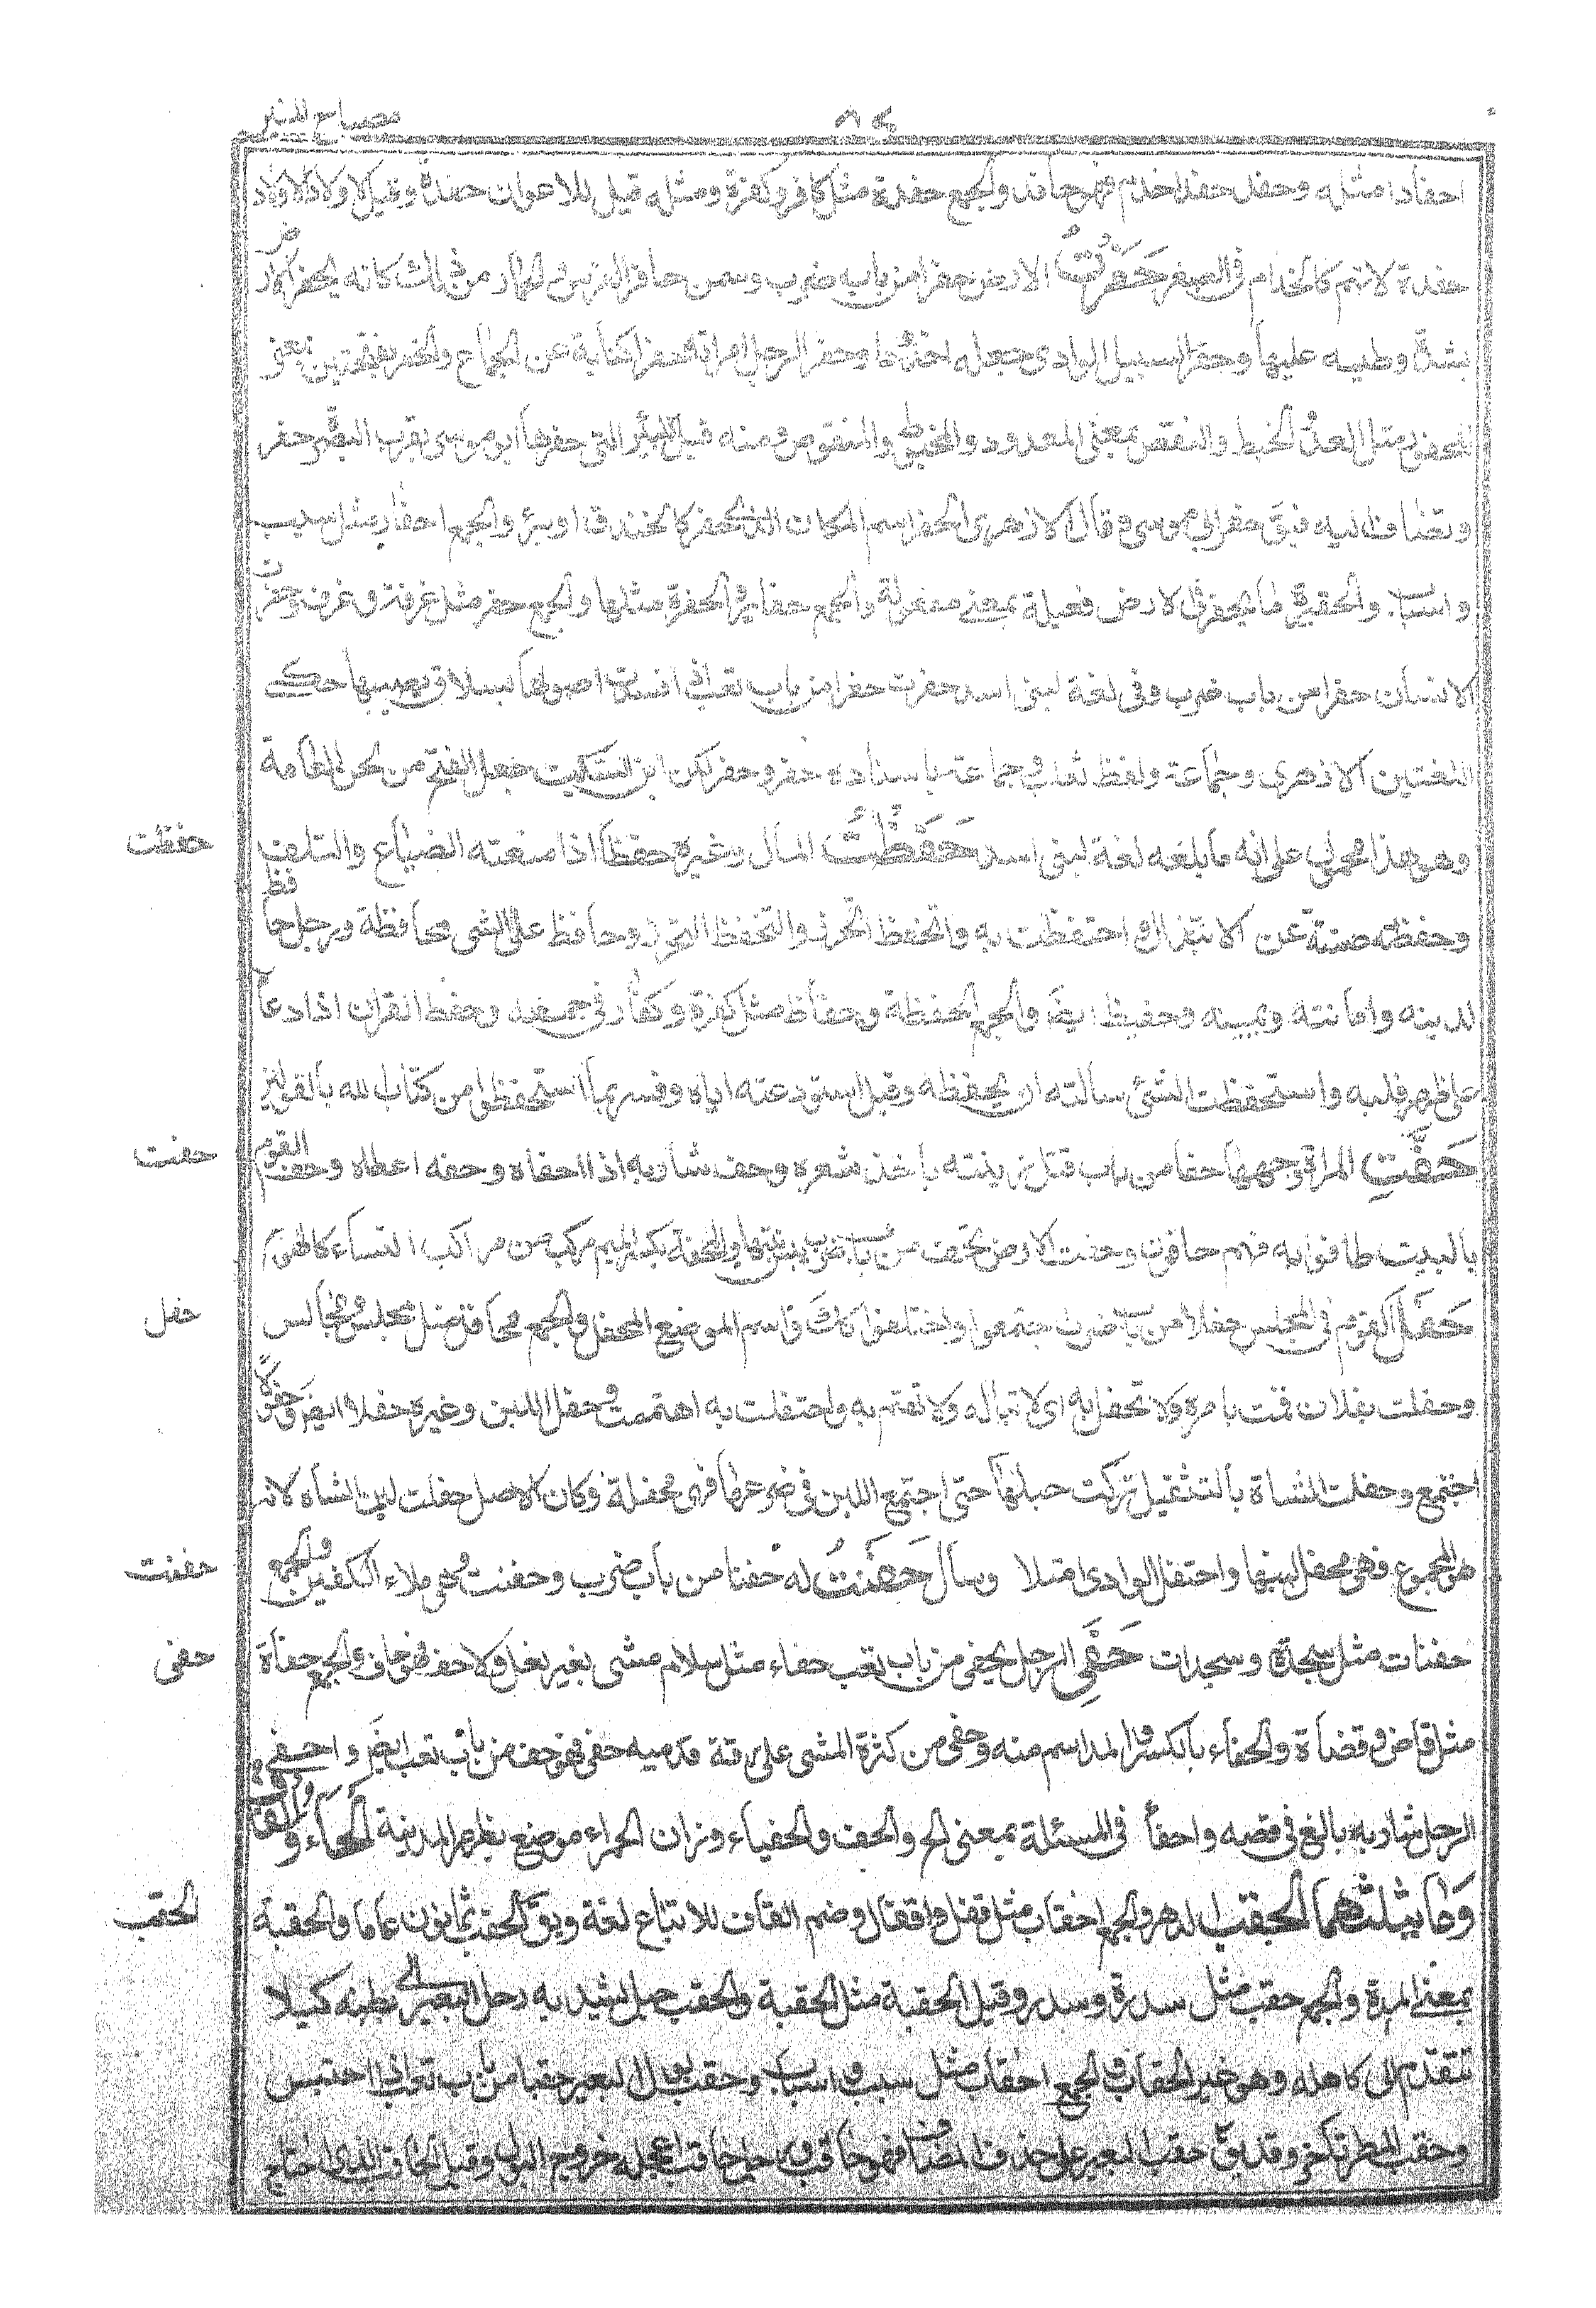 مصباح المنير
٨٤
احفادا مثله وحفد حفدا خدم فهو حافد والجمع حفدة مثل كافر وكفرة ومثله قيل للاعوان حفدة وقيل لاولاد الاولاد
حفدة لانهم كالخدام فى الصغر حفرت الارض حفرا من باب ضرب وسمى حافر الفرس والحمار من ذلك كانه يحفر الارض
بشدة وطيه عليها وحفر السيل الوادى جعله اخدودا وحفر الرجل امراته حفرا كناية عن الجماع والحفر بفتحتين بمعنى
المحفور مثل العدد والخبط والنقض بمعنى المعدود والمخبوط والمنقوض ومنه قيل للبئر التى حفرها ابو موسى بقرب البصرة حفر
وتضاف اليه فيق حفر ابى موسى وقال الازهرى الحفر اسم المكان الذى حفر كالخندق او بئر والجمع احفار مثل سبب
واسباب والحفيرة ما يحفر فى الارض فعيلة بمعنى مفعولة والجمع حفاير والحفرة مثلها والجمع حفر مثل غرفة وغرف وحفرت
الاسنان حفرا من باب ضرب وفى لغة لبنى اسد حفرت حفرا من باب تعب اذا فسدت اصولها بسلاق يصيبها حكى
اللغتين الازهرى وجماعة ولفظ ثعلب وجماعة باسنانه حفر وحفر لكن ابن السكيت جعل الفتح من لحن العامة
وهو هذا محمول على انه ما بلغه لغة لبنى اسد حفظت المال وغيره حفظا اذا منعته الضياع والتلف
حفظت
وحفظته صنته عن الابتذال واحتفظت به والتحفظ التحرز وحافظ على الشى محافظة ورجل حافظ
لدينه وامانته ويمينه وحفيظ ايضا والجمع الحفظة وحفاظ مثل كفرة وكفار فى جمعه وحفظ القران اذا وعاه
على ظهر قلبه واستحفظت الشئ سالته ان يحفظه وقيل استودعته اياه وفسر بما استحفظوا من كتاب الله بالقولين
حفت المراة وجهها حفا من باب قتل زينته باخذ شعره وحف شاربه اذا احفاه وحفه اعطاه وحف القوم
حفت
بالبيت طافوا به فهم حافون وحفت الارض تحف من باب ضرب يبس نبتها والمحفة بكسر الميم مركب من مراكب النساء كالهودج
حفل القوم فى المجلس حفلا من باب ضرب اجتمعوا واحتفلوا كذلك واسم الموضع المحفل والجمع محافل مثل مجلس ومجالس
حفل
وحفلت بفلان قمت بامره ولا تحفل به اى لا تباله ولا تهتم به واحتفلت به اهتممت وحفل اللبن وغيره حفلا ايضا وحفولا
اجتمع وحفلت الشاة بالتثقيل تركت حلبها حتى اجتمع اللبن فى ضرعها فهى محفلة وكان الاصل حفلت لبن الشاة لانه
هو المجموع فهى محفل لبنها واحتفل الوادى امتلا وسال حفنت له حفنا من باب ضرب وحفنة وهى ملاء الكفين والجمع
حفنت
حفنات مثل سجدة وسجدات حفى الرجل يحفى من باب تعب حفاء مثل سلام مشى بغير نعل ولا خف فهو حاف والجمع حفاة
حفى
مثل قاض وقضاة والحفاء بالكسر والمد اسم منه وحفى من كثرة المشى على رقة قدميه حفى فهو حف من باب تعب ايضا واحفى
الرجل شاربه بالغ فى قصه واحفا فى المسئلة بمعنى الح والحف والحفياء وزان الحمراء موضع بظاهر المدينة الحاء والقاف
وما يثلثهما الحقب الدهر والجمع احقاب مثل قفل واقفال وضم القاف للاتباع لغة ويق الحقب ثمانون عاما والحقبة
الحقب
بمعنى المدة والجمع حقب مثل سدرة وسدر وقيل الحقبة مثل الحقبة والحقب حبل يشد به رحل البعير الى بطنه كيلا
تتقدم الى كاهله وهو غير الحقاب والجمع احقاب مثل سبب واسباب وحقب بول البعير حقبا من باب تعب اذا احتبس
وحقب المطر تاخر وقد يق حقب البعير على حذف المضاف فهو حاقب ورجل حاقب اعجله خروج البول وقيل الحاقب الذى احتاج